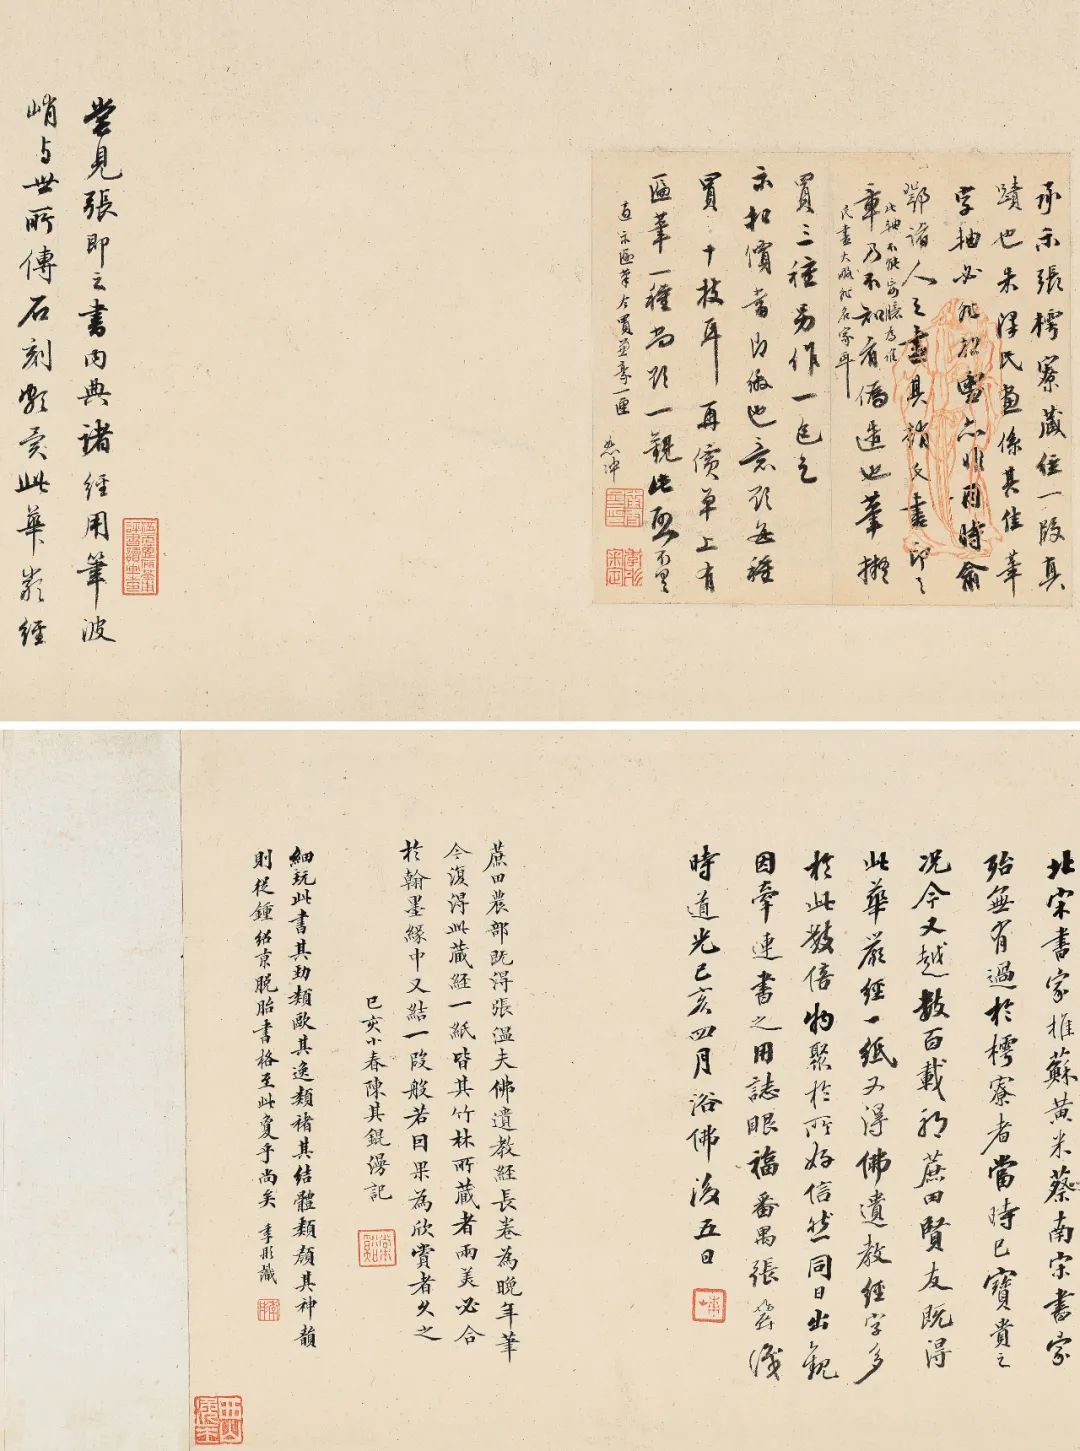 承示張樗寮藏經一段真
蹟也朱澤民畫係其佳筆
字軸必非松雪亦非同時俞
鄧諸人之畫其趙氏書印之
章乃不知有偽造也筆擬
此軸不能專臆為誰
氏畫大略非名家耳
買三種另作一包乞
示松價當即繳也意欲每種
買二十枝耳再價單上有
匾筆一種尚欲一觀此致不具
直示匾筆大買兼豪一匣
嘗見張即之書內典諸經用筆波
峭與世所傳石刻頗異此華嚴經
北宋書家推蘇黃米蔡南宋書家
殆無有過於樗寮者當時已寶貴之
況今又越數百載耶蔗田賢友既得
此華嚴經一紙又得佛遺教經字多
於此數倍物聚於所好信然同日出觀
因牽連書之用誌眼福番禺張
時道光己亥四月浴佛後五日
蔗田農部既得張溫夫佛遺教經長卷為晚年筆
今復得此藏經一紙皆其竹林所藏者兩美必合
於翰墨緣中又結一段般若因果為欣賞者久之
己亥小春陳其錕漫記
細玩此書其勁類歐其逸類褚其結體類顏其神韻
則從鍾紹京脫胎書格至此夐乎尚矣 李彤識